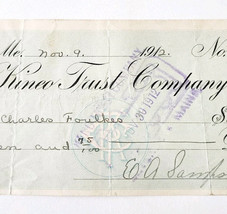 Me. Nov. 9 1912. No.
Kineo Trust Company
Charles Foulkes $
en and 75/100
E. A. Samps